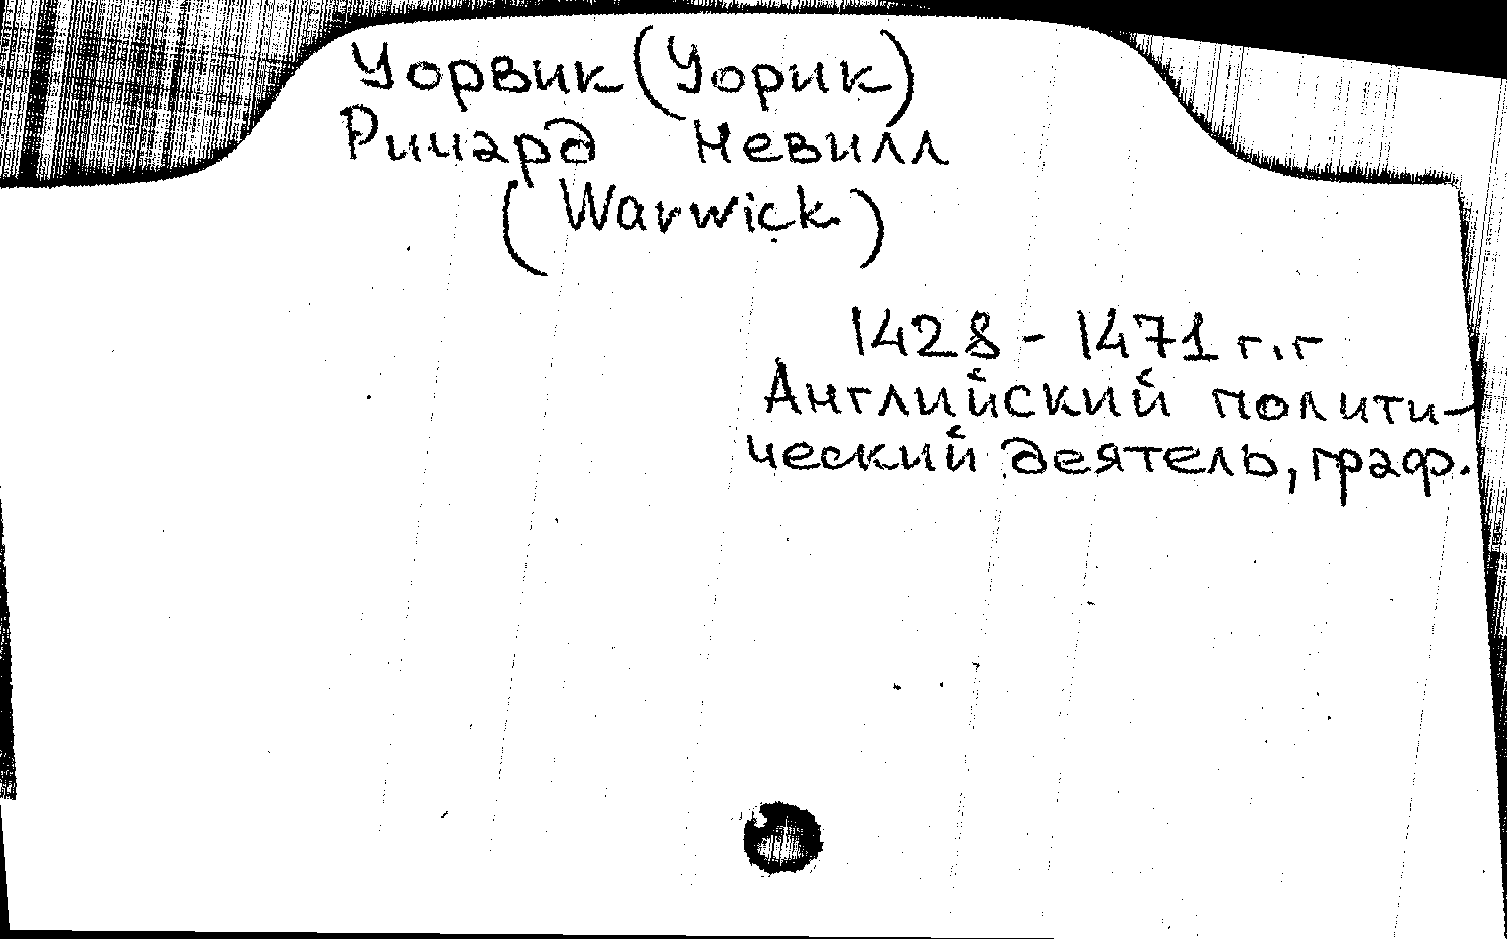 Уорвик (Уорик)
Ричард Невилл
(Warwick)
1428 - 1471 г.г
Английский полити-
ческий деятель, граф.